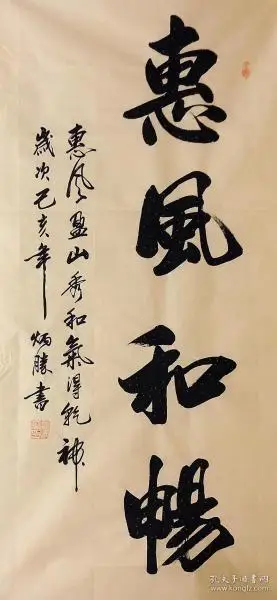 惠風和暢
惠风盈山秀和氣得乾神
歲次己亥年炳勝書
孔夫子旧书网
www.kongfz.com